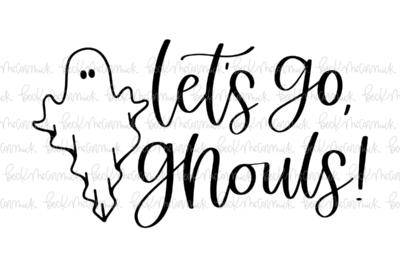 let's go,
ghouls!